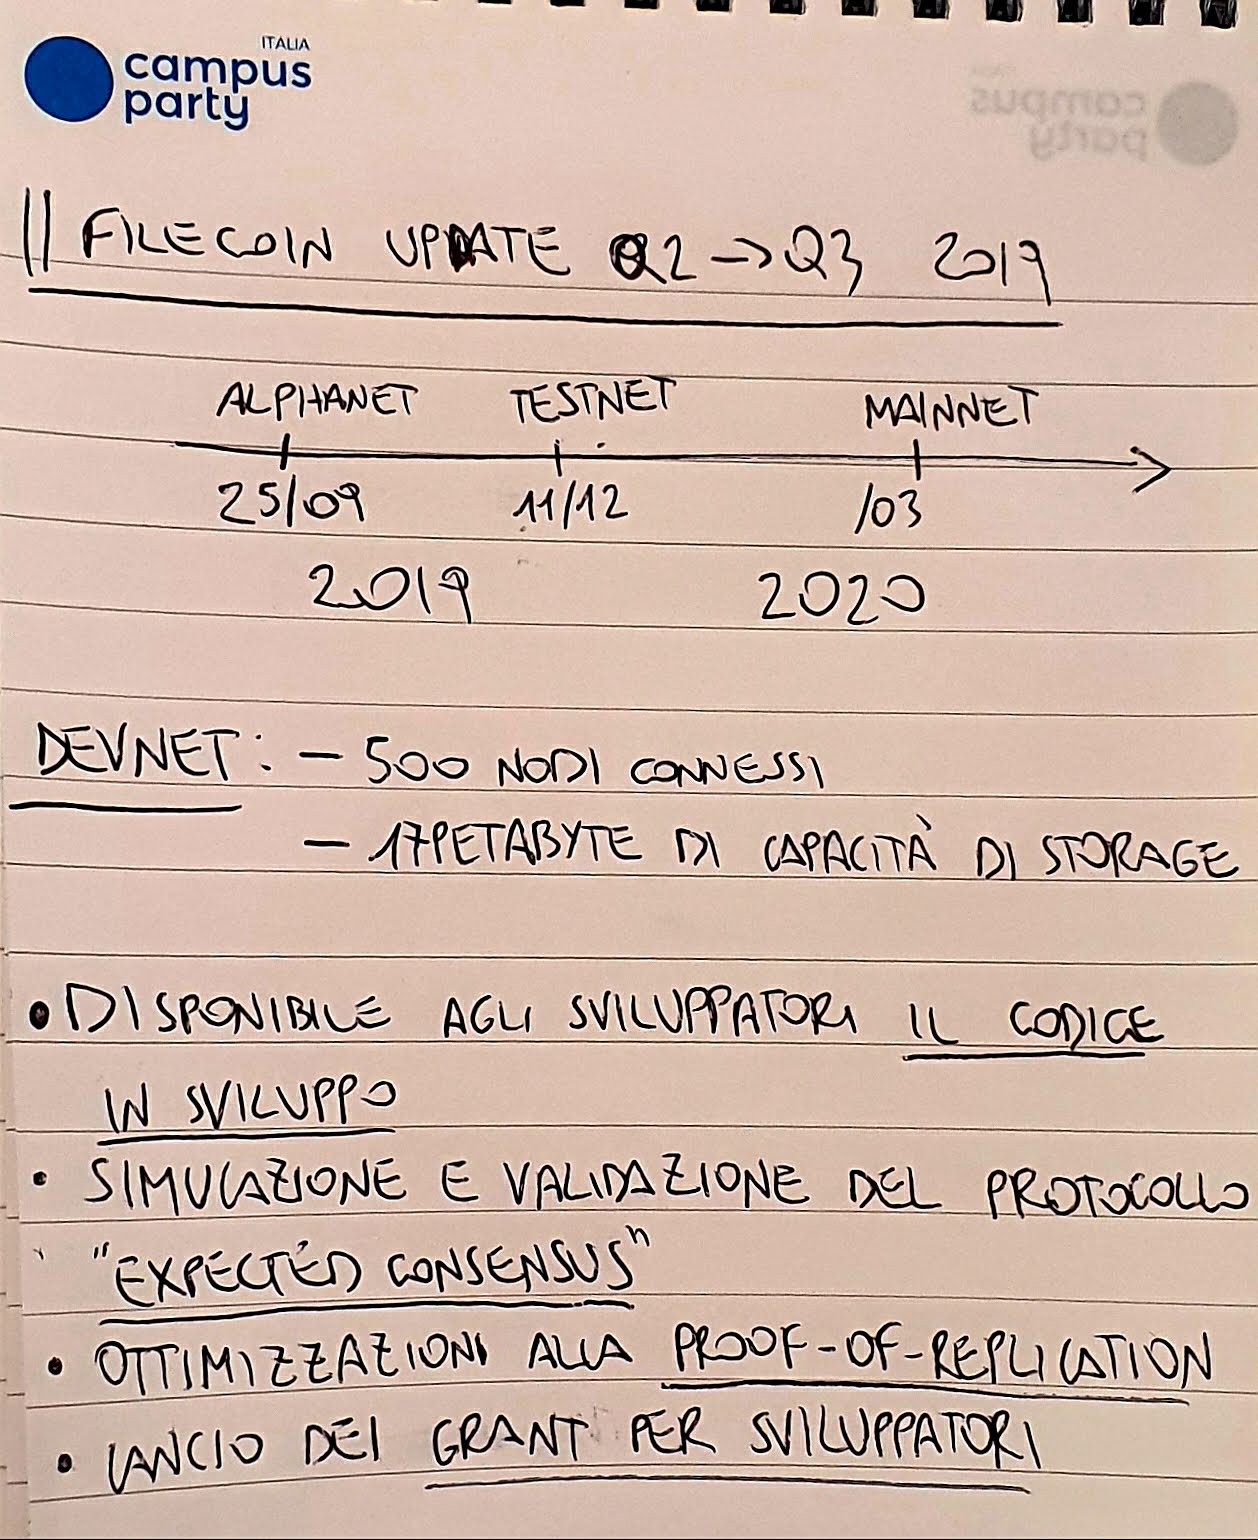 ITALIA
campus
party
campus
party
|| FILECOIN UPDATE Q2 → Q3 2019
ALPHANET TESTNET MAINNET
25/09 11/12 /03
2019 2020
DEVNET: - 500 NODI CONNESSI
- 17PETABYTE DI CAPACITÀ DI STORAGE
• DISPONIBILE AGLI SVILUPPATORI IL CODICE
IN SVILUPPO
• SIMULAZIONE E VALIDAZIONE DEL PROTOCOLLO
"EXPECTED CONSENSUS"
• OTTIMIZZAZIONI ALLA PROOF-OF-REPLICATION
• LANCIO DEI GRANT PER SVILUPPATORI